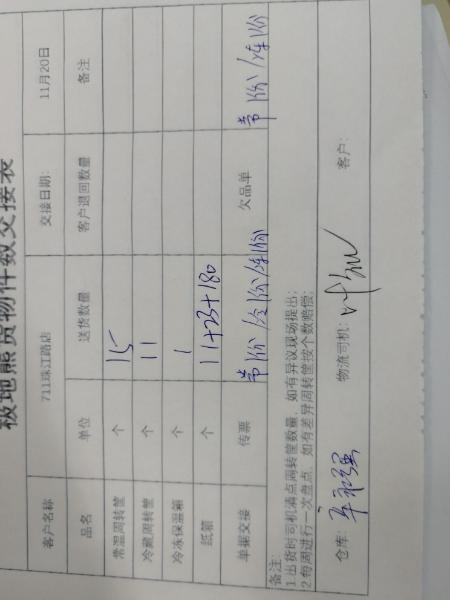 极地熊货物件数交接表
客户名称 711珠江路店 交接日期: 11月20日
品名 单位 送货数量 客户退回数量 备注
常温周转筐 个 15
冷藏周转筐 个 11
冷冻保温箱 个 1
纸箱 个 11+23+180
单据交接 传票 常1份/冷1份/冻1份 欠品单 常1份/冻1份
备注:
1.出货时司机清点周转筐数量，如有异议现场提出;
2.每周进行一次盘点，如有差异周转筐按个数赔偿;
仓库: 物流司机: 客户: